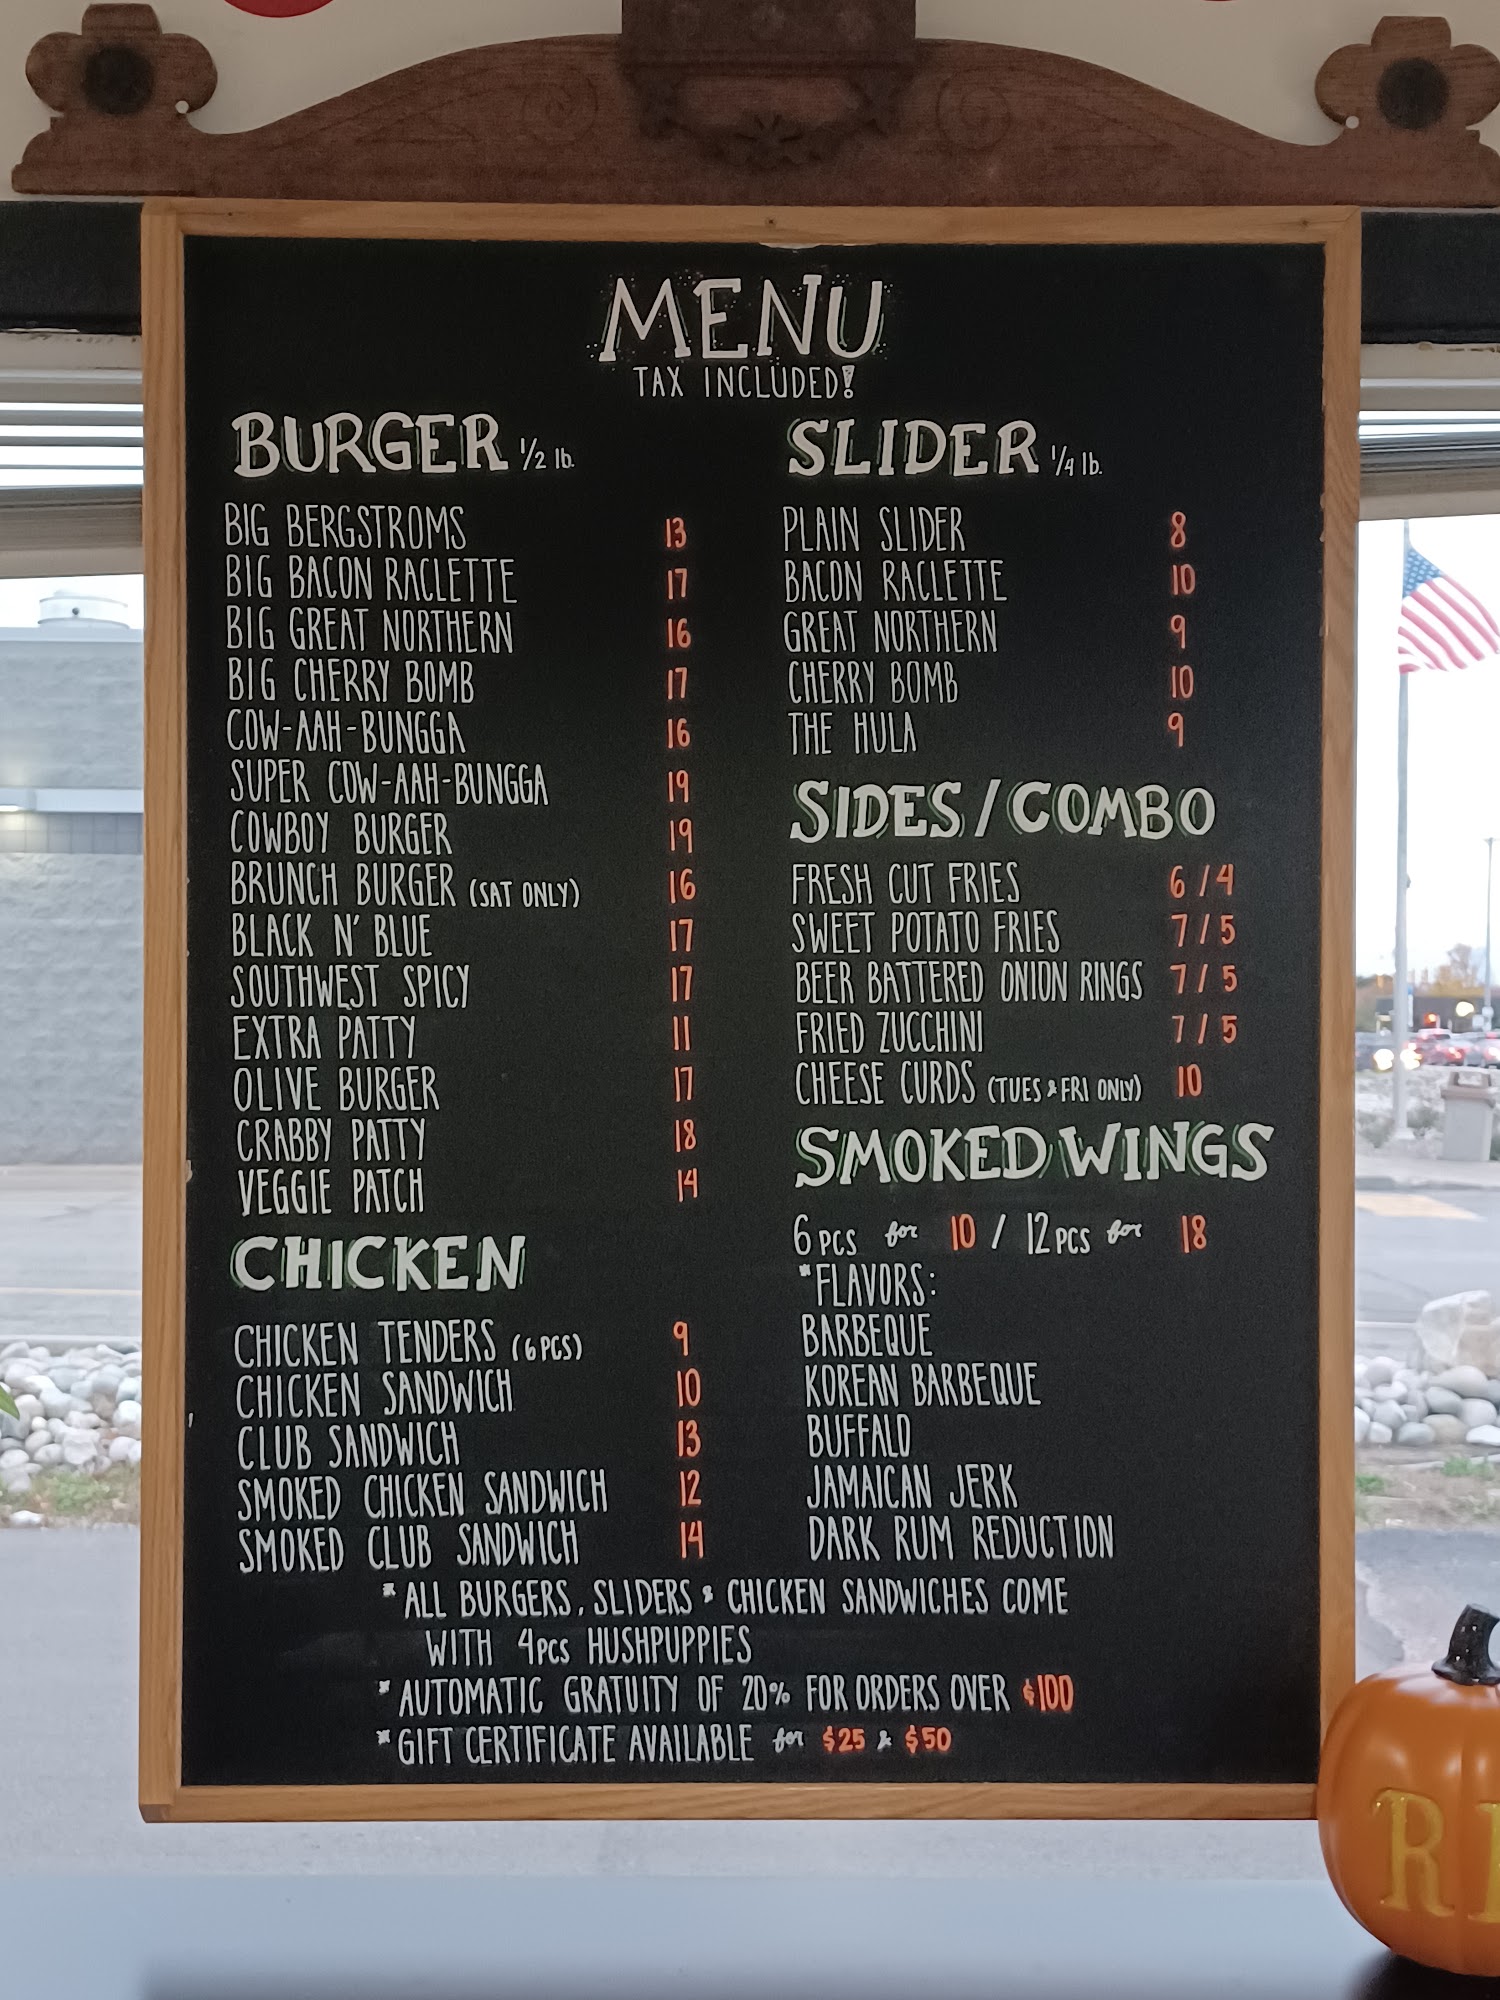 MENU
TAX INCLUDED!
BURGER 1/2 lb.
BIG BERGSTROMS 13
BIG BACON RACLETTE 17
BIG GREAT NORTHERN 16
BIG CHERRY BOMB 17
COW-AAH-BUNGGA 16
SUPER COW-AAH-BUNGGA 19
COWBOY BURGER 19
BRUNCH BURGER (SAT ONLY) 16
BLACK N' BLUE 17
SOUTHWEST SPICY 17
EXTRA PATTY 11
OLIVE BURGER 17
CRABBY PATTY 18
VEGGIE PATCH 14
CHICKEN
CHICKEN TENDERS (6 PCS) 9
CHICKEN SANDWICH 10
CLUB SANDWICH 13
SMOKED CHICKEN SANDWICH 12
SMOKED CLUB SANDWICH 14
SLIDER 1/4 lb.
PLAIN SLIDER 8
BACON RACLETTE 10
GREAT NORTHERN 9
CHERRY BOMB 10
THE HULA 9
SIDES / COMBO
FRESH CUT FRIES 6 / 4
SWEET POTATO FRIES 7 / 5
BEER BATTERED ONION RINGS 7 / 5
FRIED ZUCCHINI 7 / 5
CHEESE CURDS (TUES & FRI ONLY) 10
SMOKED WINGS
6 PCS for 10 / 12 PCS for 18
*FLAVORS:
BARBEQUE
KOREAN BARBEQUE
BUFFALO
JAMAICAN JERK
DARK RUM REDUCTION
* ALL BURGERS, SLIDERS & CHICKEN SANDWICHES COME
WITH 4pcs HUSHPUPPIES
* AUTOMATIC GRATUITY OF 20% FOR ORDERS OVER $100
* GIFT CERTIFICATE AVAILABLE for $25 & $50